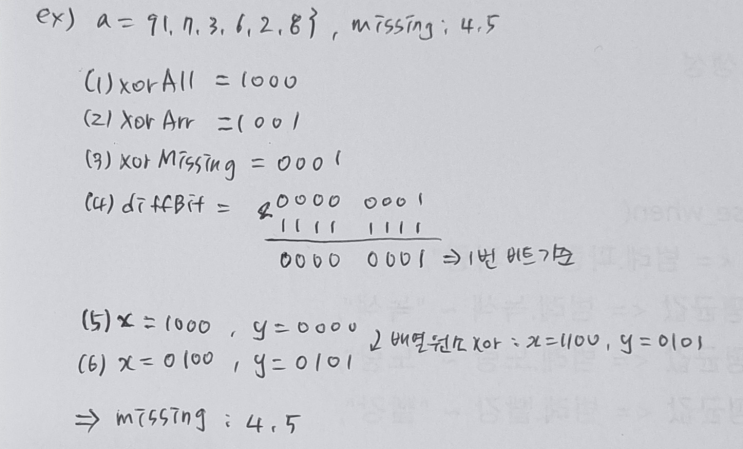 ex) a = {1, 7, 3, 6, 2, 8}, missing: 4, 5
(1) xor All = 1000
(2) Xor Arr = 1001
(3) xor Missing = 0001
(4) diffBit = 0000 0001
& 1111 1111
0000 0001 ⇒ 1번 비트 기준
(5) x = 1000, y = 0000
배열원소 xor : x=1100, y=0101
(6) x = 0100, y = 0101
⇒ missing : 4, 5